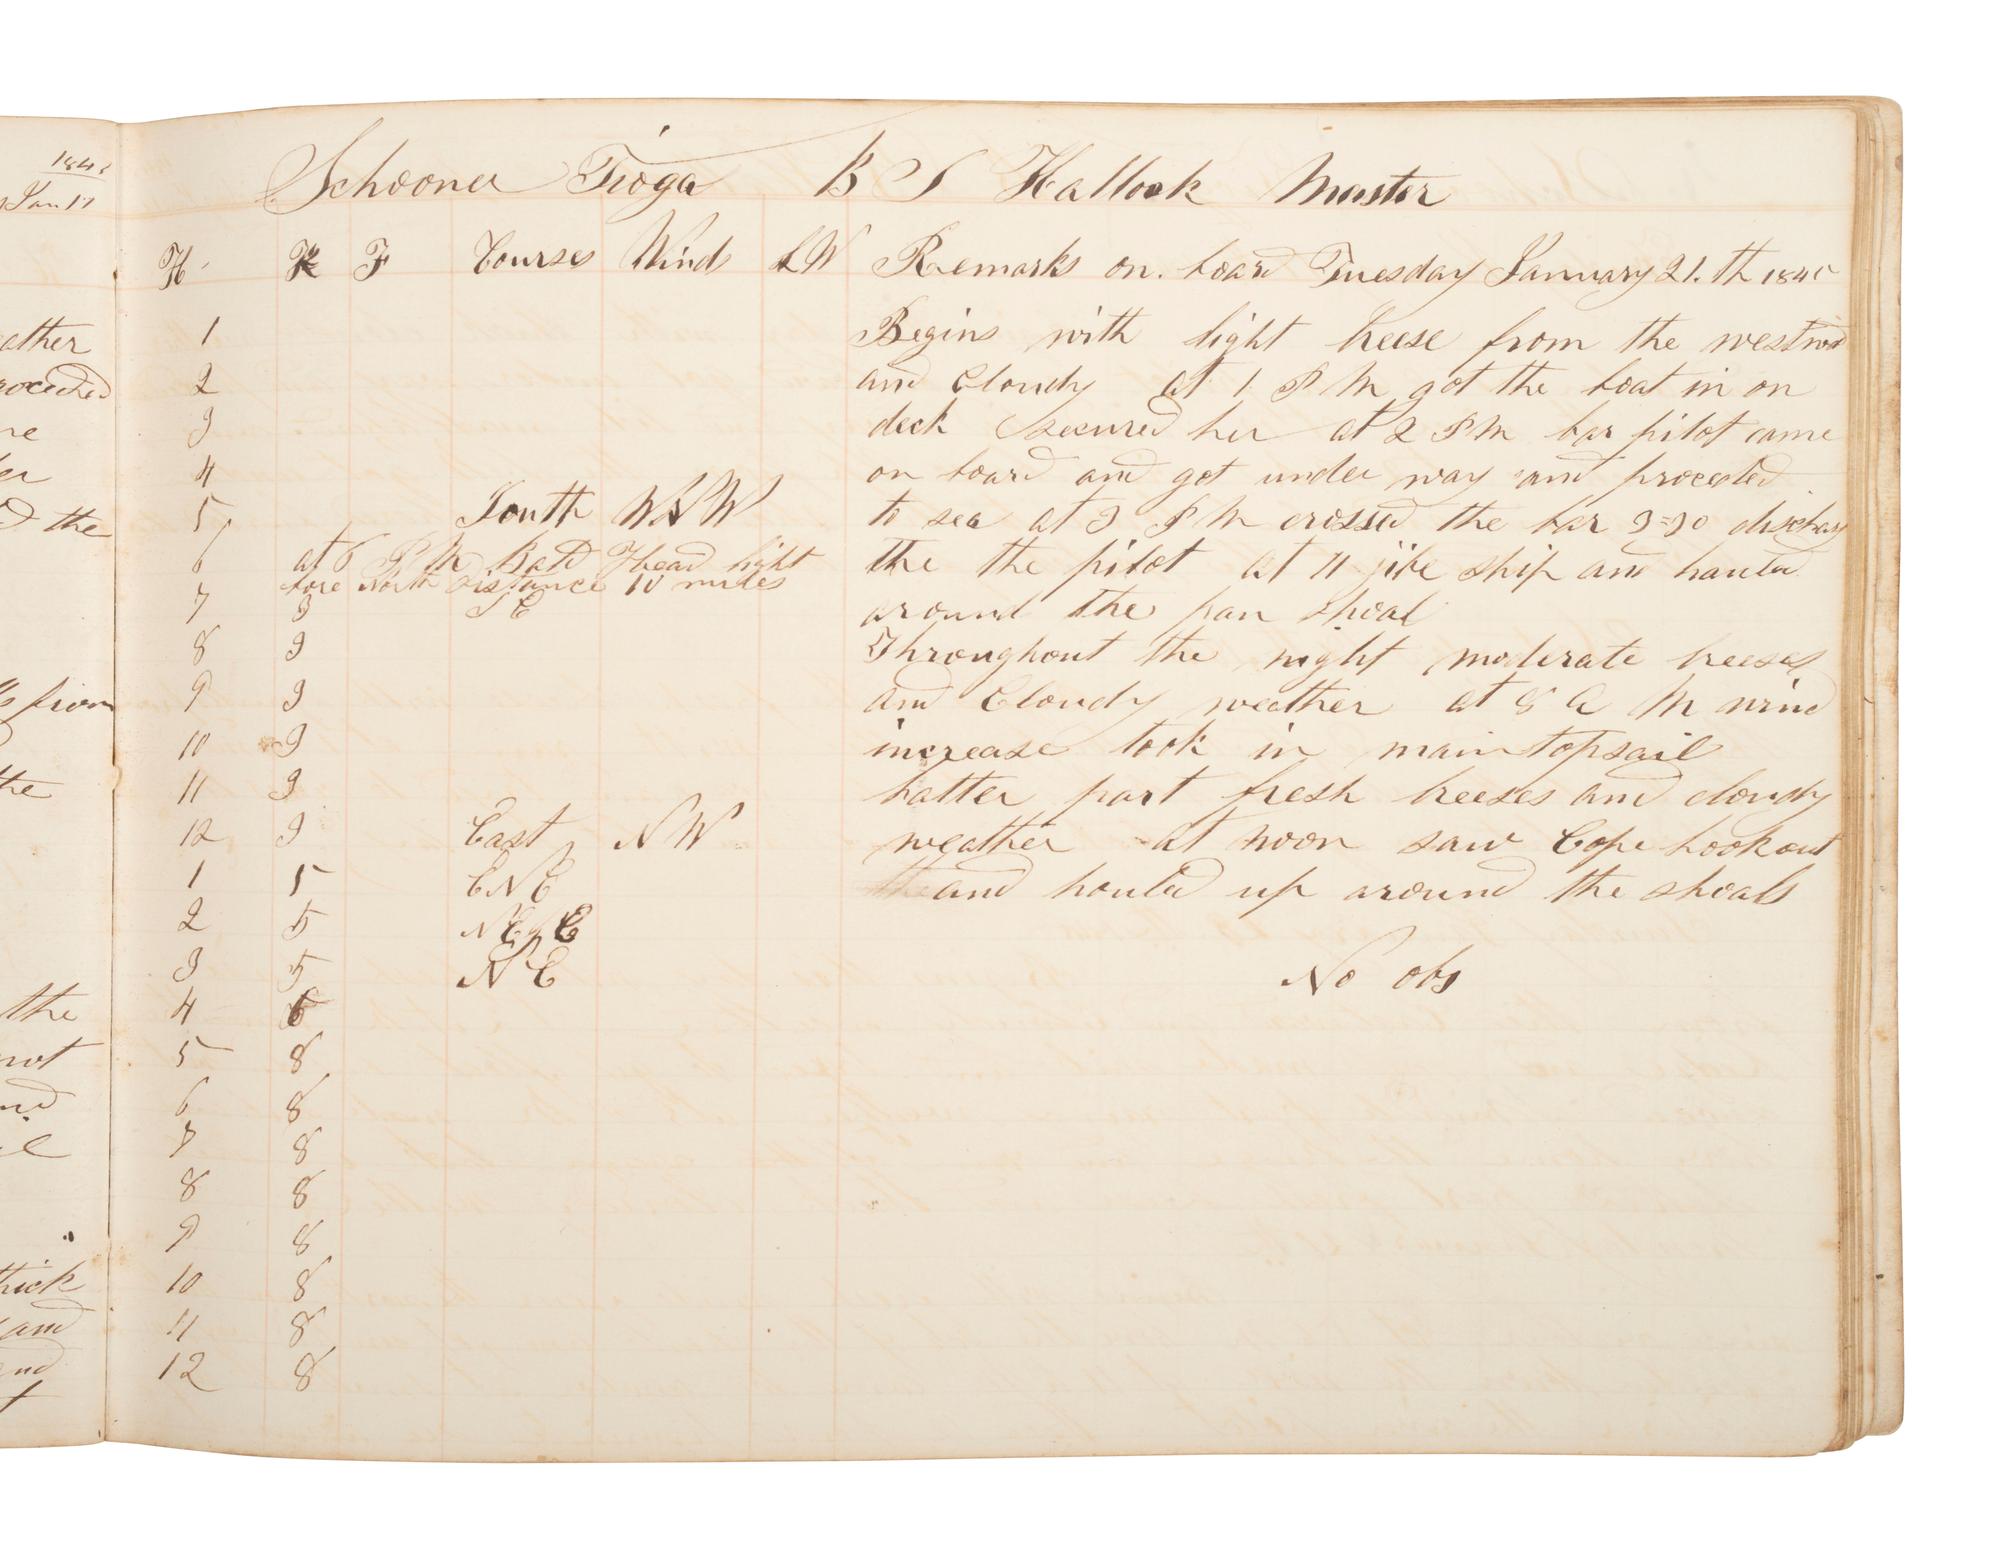 1845
Jan 17
ather
roceeded
the
the
from
the
the
not
and
thick
and
and
Schooner Tioga B S Hallock Master
H K F Courses Winds LW Remarks on board Tuesday January 21.th 1845
1 Begins with light breese from the westward
2 and Cloudy at 1 P M got the boat in on
3 deck secured her at 2 P M bar pilot came
4 on board and got under way and proceeded
5 South WSW to sea at 3 P M crossed the bar 3=30 discharg
6 at 6 P M Bald Head light the the pilot at 11 jibe ship and hauled
bore North distance 10 miles
7 3 SE around the pan shoal
8 3 Throughout the night moderate breeses
9 3 and Cloudy weather at 8 A M wind
10 3 increase took in main topsail
11 3 Latter part fresh breeses and cloudy
12 3 East N W weather at noon saw Cape Lookout
1 5 ENE and hauled up around the shoals
2 5 NE by E
3 5 N E No obs
4 6
5 8
6 8
7 8
8 8
9 8
10 8
11 8
12 8